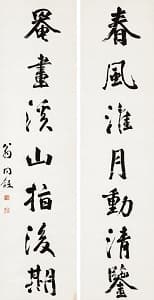 春風淮月動清鑒
罨畫溪山指後期
翁同龢